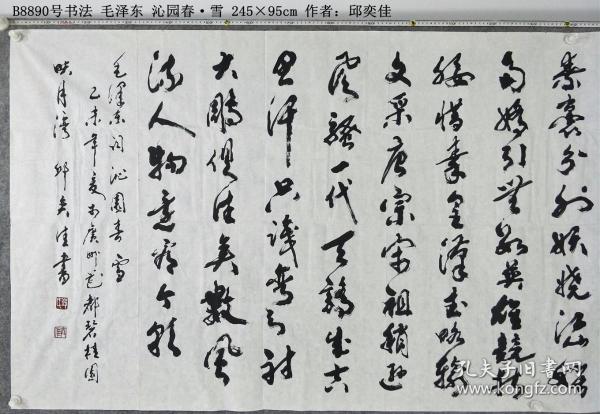 B8890号书法 毛泽东 沁园春·雪 245×95cm 作者：邱奕佳
素裹分外妖嬈江山如此
多嬌引無數英雄競折
腰惜秦皇漢武略輸
文采唐宗宋祖稍遜
風騷一代天驕成吉
思汗只識彎弓射
大鵰俱往矣數風
流人物還看今朝
毛澤東詞沁園春雪
乙未年夏於廣州花都碧桂園
映月灣邱奕佳書
孔夫子旧书网
www.kongfz.com